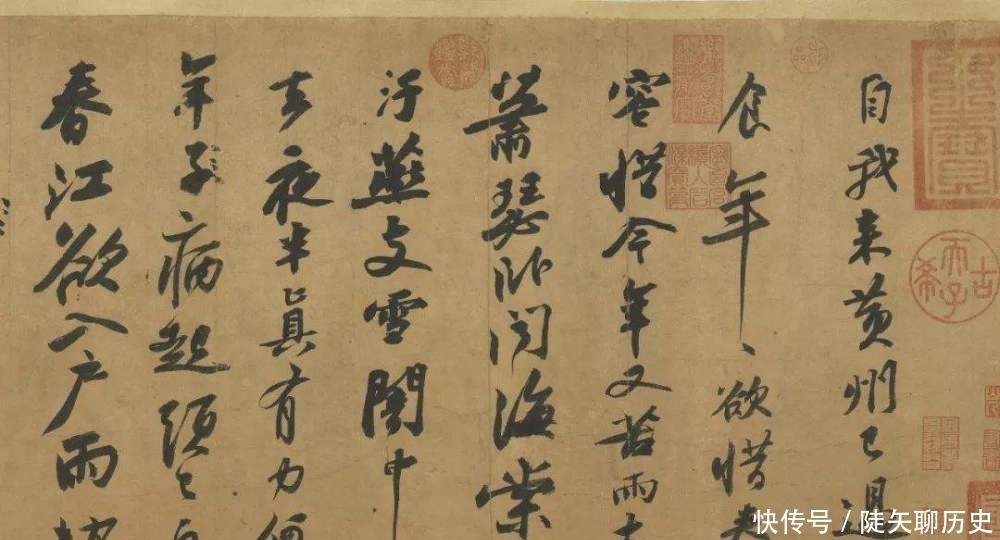 自我来黄州已過
食年〻欲惜春
容惜今年又苦雨
蕭瑟卧聞海棠
汙燕支雪闇中
去夜半真有力何
年子病起須已
春江欲入户雨勢
古希天子
快传号 / 陡矢聊历史